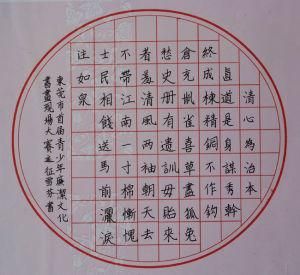 清心為治本
直道是身謀秀幹
終成棟精銅不作鈎
倉充鼠雀喜草盡狐兔
愁史册有遺訓毋貽來
者羞清風兩袖朝天去
不帶江南一寸棉慚愧
士民相餞送馬前灑淚
注如泉
東莞市首届青少年廉潔文化
書畫現場大賽 雪芬書